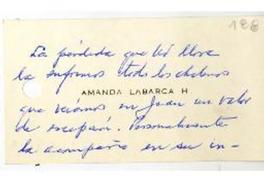 188
La pérdida que Ud llora
la sufrimos todos los chilenos
AMANDA LABARCA H
que veíamos en Juan un valor
de excepción. Personalmente
la acompaño en su in-